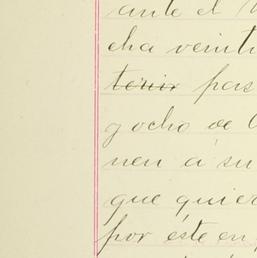 ante el
cha veinti
tenir pas
y ocho de
nen á su
que quier
por éste en